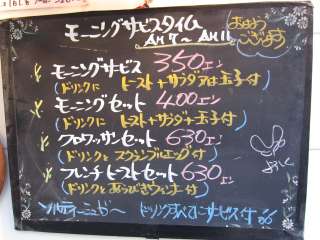 モーニングサービスタイム
AM7～AM11
おはよう
ございます
モーニングサービス 350エン
(ドリンクに トースト+サラダ又は玉子付)
モーニングセット 400エン
(ドリンクに トースト+サラダ+玉子付)
クロワッサンセット 630エン
(ドリンクとスクランブルエッグ付)
フレンチトーストセット 630エン
(ドリンクとあらびきウィンナー付)
ドリンクすべてにサービス付